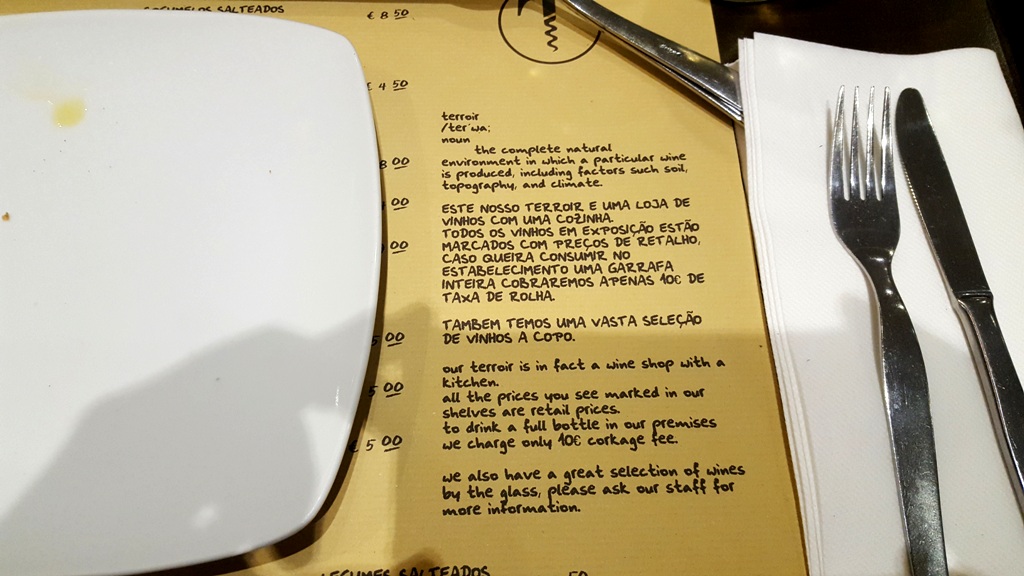 COGUMELOS SALTEADOS
€ 8 50
€ 4 50
8 00
00
00
5 00
5 00
€ 5 00
terroir
/ter'wa;
noun
the complete natural
environment in which a particular wine
is produced, including factors such soil,
topography, and climate.
ESTE NOSSO TERROIR E UMA LOJA DE
VINHOS COM UMA COZINHA.
TODOS OS VINHOS EM EXPOSIÇÃO ESTÃO
MARCADOS COM PREÇOS DE RETALHO,
CASO QUEIRA CONSUMIR NO
ESTABELECIMENTO UMA GARRAFA
INTEIRA COBRAREMOS APENAS 10€ DE
TAXA DE ROLHA.
TAMBEM TEMOS UMA VASTA SELEÇÃO
DE VINHOS A COPO.
our terroir is in fact a wine shop with a
kitchen.
all the prices you see marked in our
shelves are retail prices.
to drink a full bottle in our premises
we charge only 10€ corkage fee.
we also have a great selection of wines
by the glass, please ask our staff for
more information.
LEGUMES SALTEADOS
50